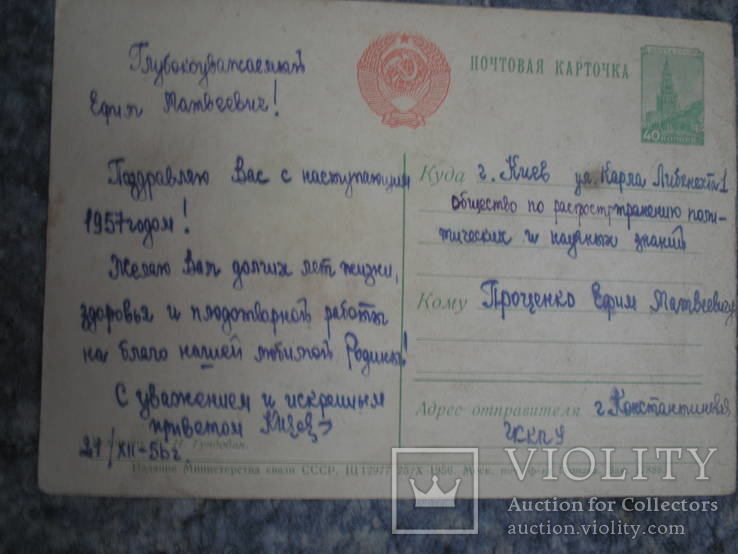 Глубокоуважаемый
Ефим Матвеевич!
Поздравляю Вас с наступающим
1957 годом!
Желаю Вам долгих лет жизни,
здоровья и плодотворной работы
на благо нашей любимой Родины!
С уважением и искренним
приветом
27/XII-56 г.
Гундобин.
ПОЧТОВАЯ КАРТОЧКА
ПОЧТА СССР
40 КОПЕЕК
Куда г. Киев ул. Карла Либкнехта 1
Общество по распространению поли-
тических и научных знаний
Кому Проценко Ефим Матвеевичу
Адрес отправителя г. Константиновка
Издание Министерства связи СССР. 1956. Моск.
VIOLITY
Auction for Collectors
auction.violity.com